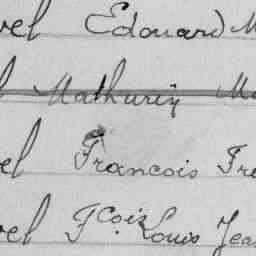 vel Edouard M
l Mathurin Ma
el Francois Fre
vel Fcois Louis Jea